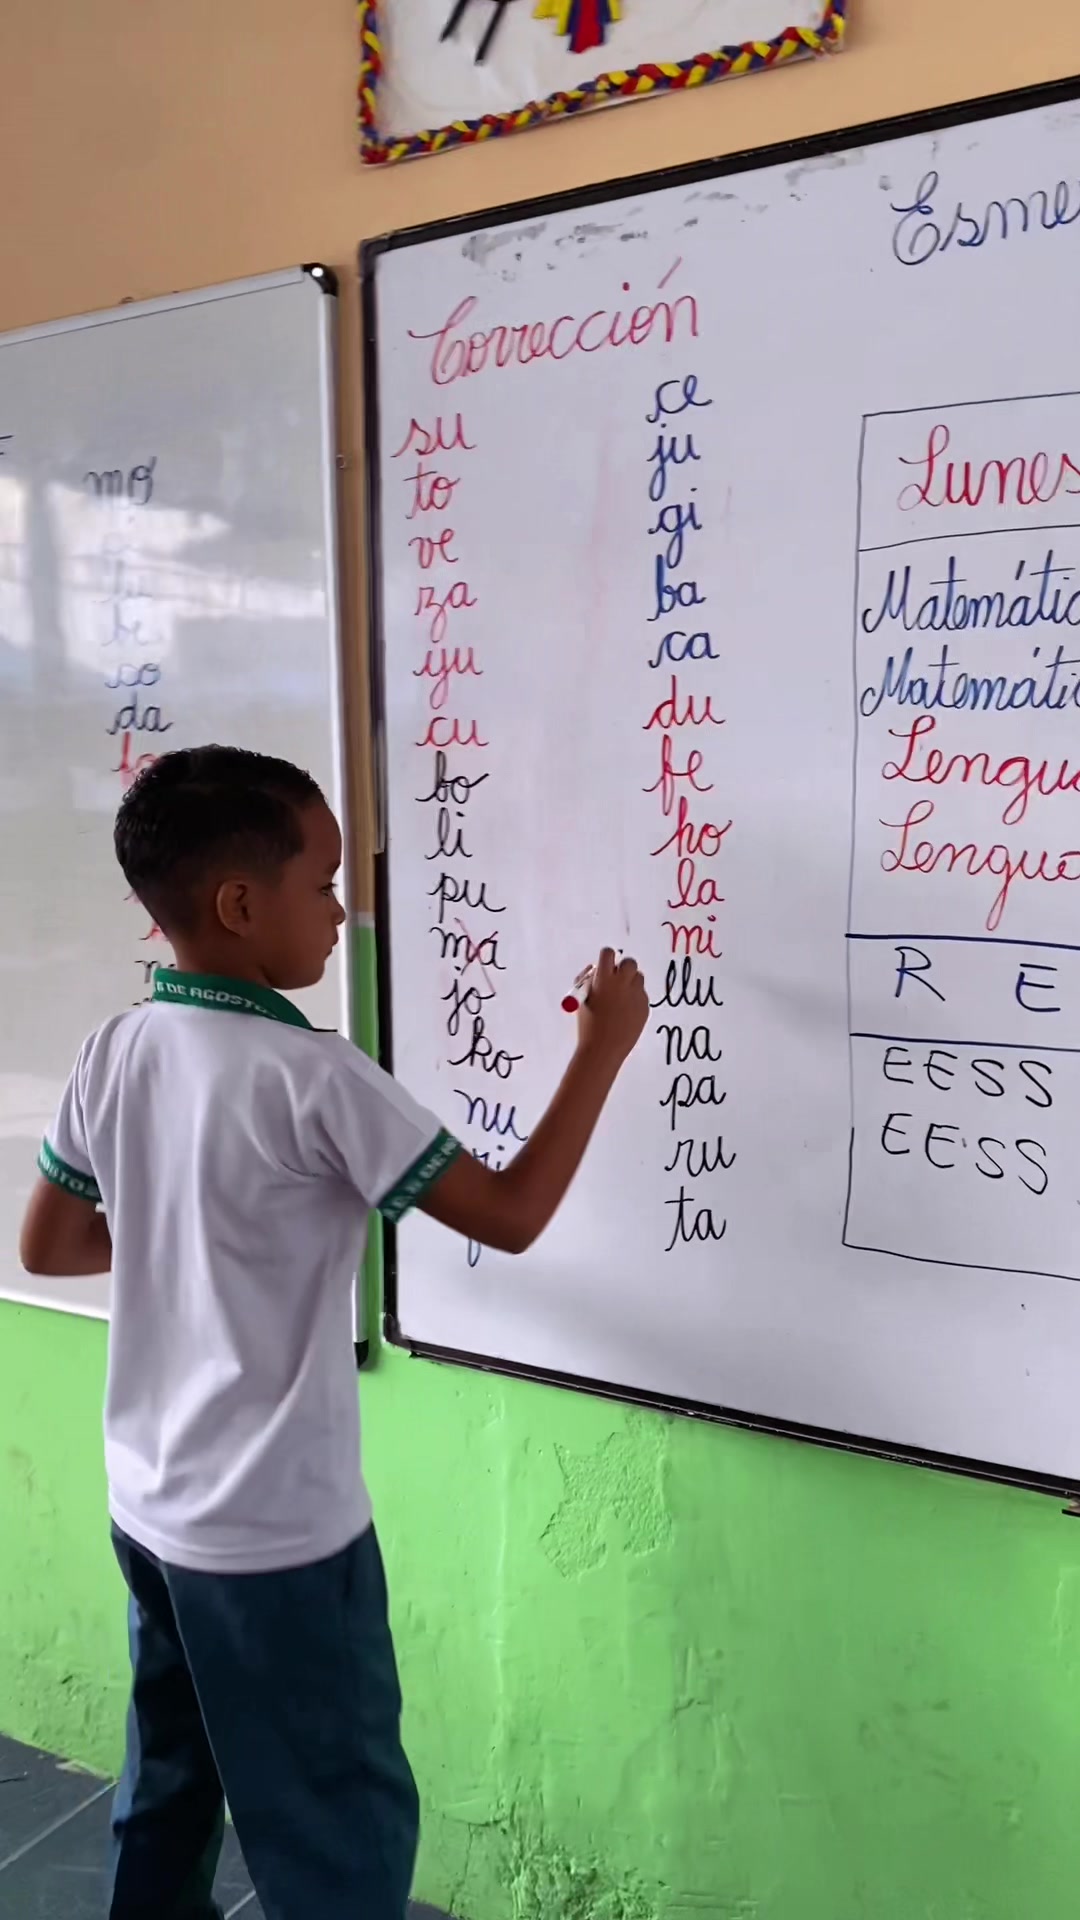 Corrección
su
to
ve
za
yu
cu
bo
li
pu
má
jo
ko
nu
ce
ju
gi
ba
ca
du
fe
ho
la
mi
llu
na
pa
ru
ta
Lunes
R E
EESS
EESS
mo
be
so
da
DE AGOSTO